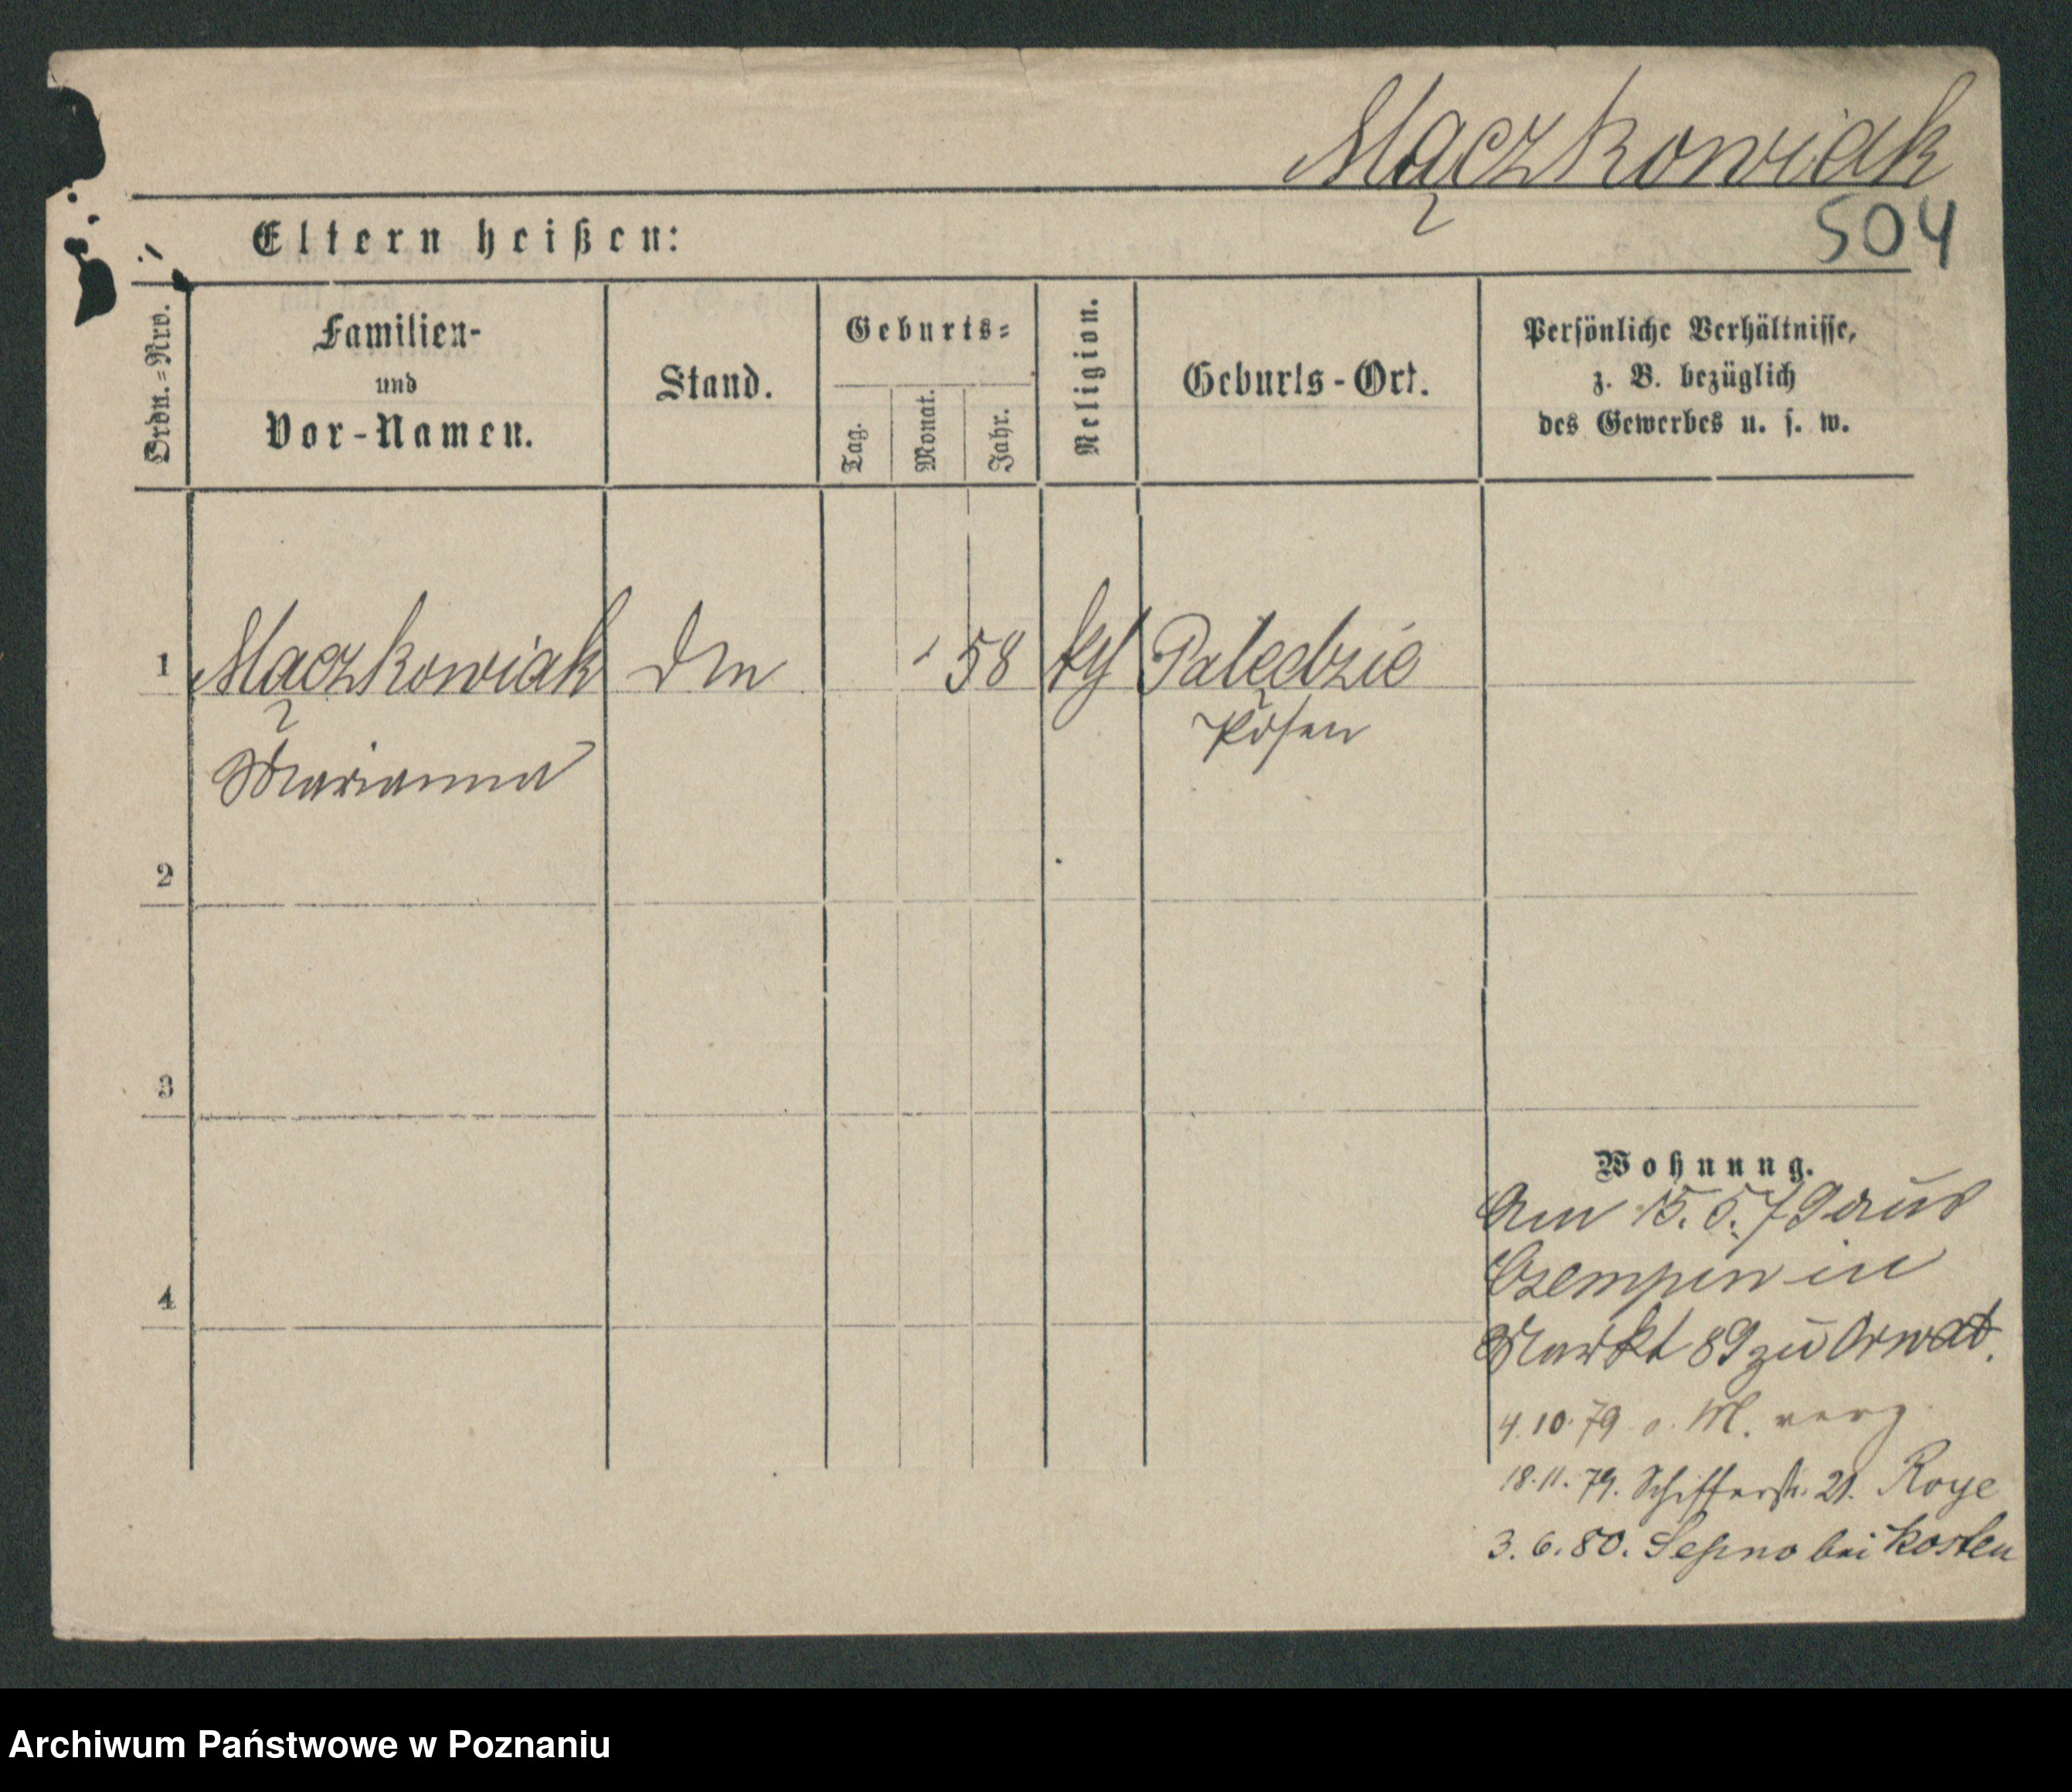 Mączkowiak
504
Eltern heißen:
Ordn.=Nro.
Familien-
und
Vor-Namen.
Stand.
Geburts=
Tag.
Monat.
Jahr.
Religion.
Geburts-Ort.
Persönliche Verhältnisse,
z. B. bezüglich
des Gewerbes u. s. w.
1 Mączkowiak 58 Palędzie
Posen
Marianna
2
3
4
Wohnung.
Am 15.5.79 aus
Czempin in
Markt 89 zu Orwat.
4.10.79 M. verz
18.11.79. Schifferstr. 21. Roye
3.6.80. Sepno bei Kosten
Archiwum Państwowe w Poznaniu